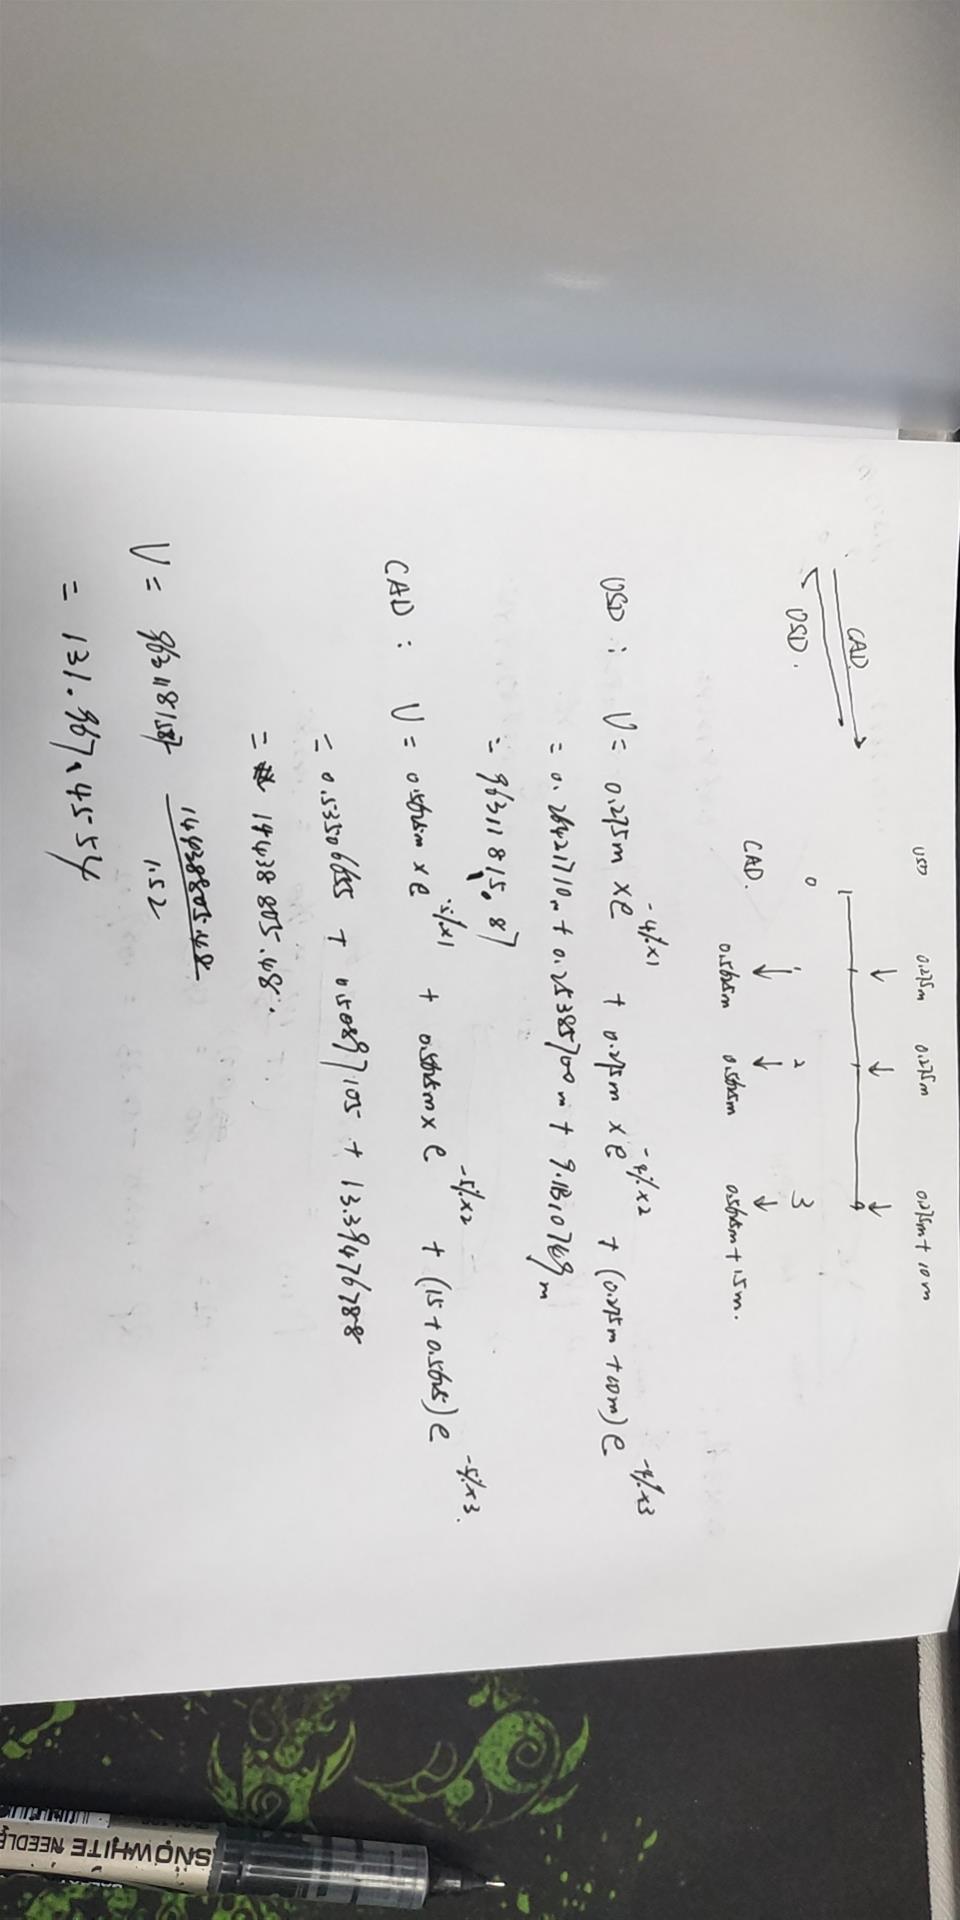 CAD
USD.
USD 0.275m 0.275m 0.275m + 10m
0 1 2 3
CAD. 0.5625m 0.5625m 0.5625m + 15m.
USD : V = 0.275m × e^-4%×1 + 0.275m × e^-4%×2 + (0.275m + 10m) e^-4%×3
= 0.26421710m + 0.25385700m + 9.11310769m
= 96311815.87
CAD : V = 0.5625m × e^-5%×1 + 0.5625m × e^-5%×2 + (15 + 0.5625) e^-5%×3.
= 0.53506655 + 0.50897105 + 13.39476788
= 14438805.48.
V = 9631181.587 - 14438805.48 / 1.52
= 131.967,4554
SNOWHITE NEEDLE